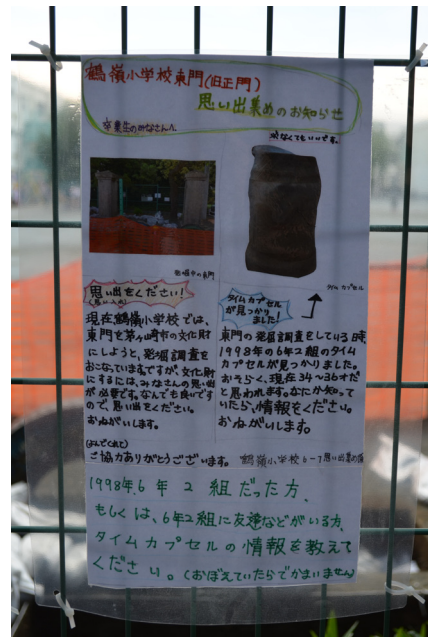 鶴嶺小学校東門(旧正門)
思い出集めのお知らせ
卒業生のみなさんへ
少なくてもいいです。
発掘中の東門
タイムカプセル
思い出をください!
タイムカプセル
が見つかり
ました!
現在、鶴嶺小学校では、
東門を茅ヶ崎市の文化財
にしようと、発掘調査を
おこなっていますですが、文化財
にするには、みなさんの思い出
が必要です。なんでも良いです
ので、思い出をください。
おねがいします。
東門の発掘調査をしている時、
1998年の6年2組のタイム
カプセルが見つかりました。
おそらく、現在34〜36才だ
と思われます。なにか知って
いたら、情報をください。
おねがいします。
(よんでくれて)
ご協力ありがとうございます。
鶴嶺小学校6-1思い出集め係
1998年.6年2組だった方、
もしくは、6年2組に友達などがいる方、
タイムカプセルの情報を教えて
ください。(おぼえていたらでかまいません)